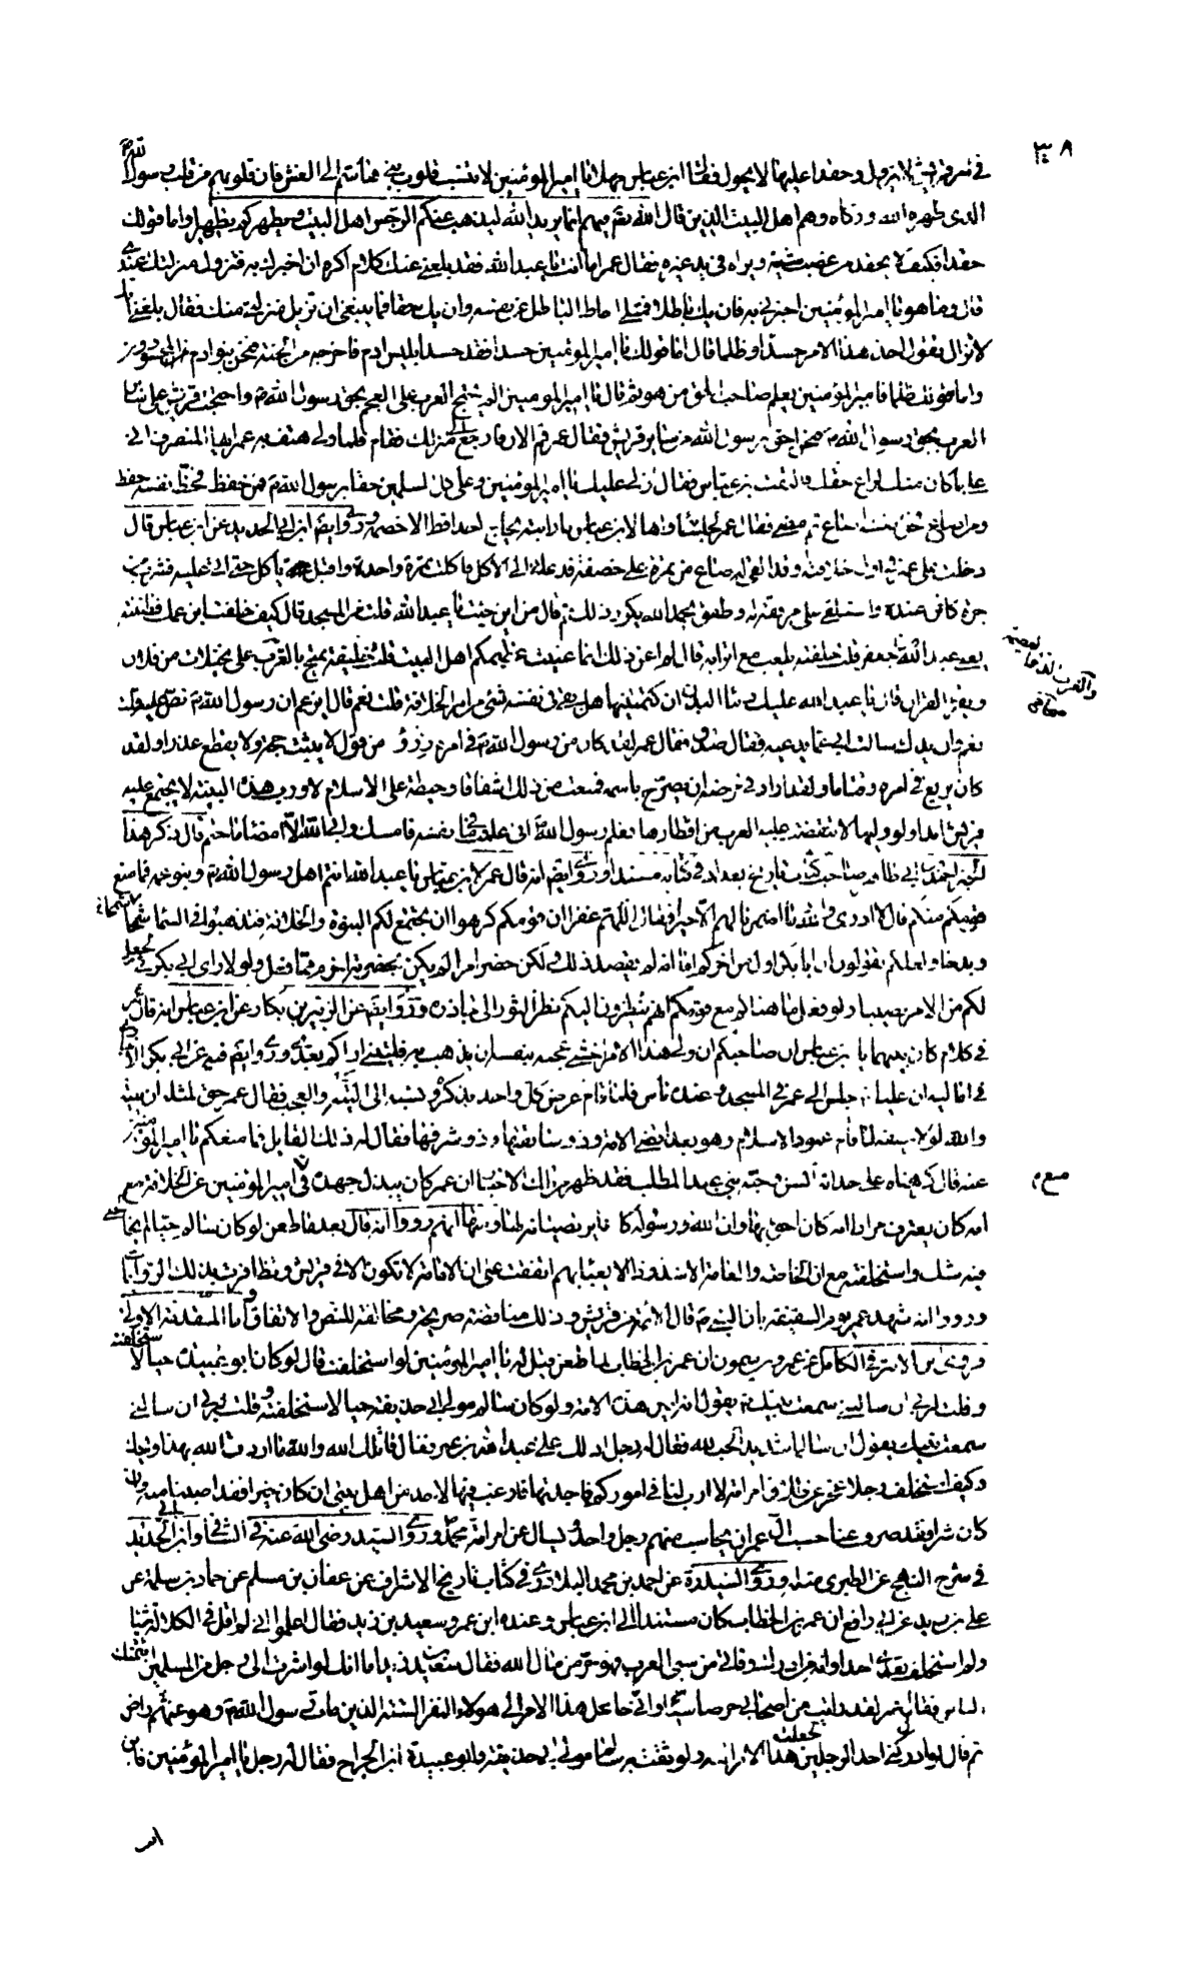 ٣٠٨
لا يزول وحقدا عليها لا يحول فقال ابن عباس مهلا يا امير المؤمنين لا تنسب قلوب بني هاشم الى الغش فان قلوبهم من قلب رسول الله
الذي طهره الله وزكاه وهم اهل البيت الذين قال الله تعالى فيهم انما يريد الله ليذهب عنكم الرجس اهل البيت ويطهركم تطهيرا واما قولك
حقدا فكيف لا يحقد من غصب شيئه ويراه في يد غيره فقال عمر اما انت يا عبد الله فقد بلغني عنك كلام اكره ان اخبرك به فتزول منزلتك عندي
قال وما هو يا امير المؤمنين اخبرني به فان يك باطلا فمثلي اماط الباطل عن نفسه وان يك حقا فما ينبغي ان تزيل منزلتي منك فقال بلغني انك
لا تزال تقول اخذ هذا الامر حسدا وظلما قال اما قولك يا امير المؤمنين حسدا فقد حسد ابليس ادم فاخرجه من الجنة فنحن بنو ادم
واما قولك ظلما فامير المؤمنين يعلم صاحب الحق من هو ثم قال يا امير المؤمنين الم يحتج العرب على العجم بحق رسول الله واحتجت قريش على سائر
العرب بحق رسول الله فنحن احق برسول الله من سائر قريش فقال عمر قم الان فارجع الى منزلك فقام فلما ولى هتف به عمر ايها المنصرف اني
على ما كان منك لراع حقك فالتفت ابن عباس فقال ان لي عليك يا امير المؤمنين وعلى كل المسلمين حقا برسول الله فمن حفظه فحظ نفسه حفظ
ومن اضاعه فحق نفسه اضاع ثم مضى فقال عمر لجلسائه واها لابن عباس ما رايته يحاج احدا قط الا خصمه وروى ايضا ابن ابي الحديد عن ابن عباس قال
دخلت على عمر في اول خلافته وقد القي له صاع من تمر على خصفة فدعاني الى الاكل فاكلت تمرة واحدة واقبل ياكل حتى اتى عليه ثم شرب من
جرة كانت عنده واستلقى على مرفقة له وطفق يحمد الله يكرر ذلك ثم قال من اين جئت يا عبد الله قلت من المسجد قال كيف خلفت ابن عمك فظننته
يعني عبد الله بن جعفر قلت خلفته يلعب مع اترابه قال لم اعن ذلك انما عنيت عظيمكم اهل البيت قلت خلفته يمتح بالغرب على نخيلات من فلان
ويقرأ القران قال يا عبد الله عليك دماء البدن ان كتمتنيها هل بقي في نفسه شيء من امر الخلافة قلت نعم قال ايزعم ان رسول الله نص عليه قلت
نعم وازيدك سالت ابي عما يدعيه فقال صدق فقال عمر لقد كان من رسول الله في امره ذرو من قول لا يثبت حجة ولا يقطع عذرا ولقد
كان يربع في امره وقتا ما ولقد اراد في مرضه ان يصرح باسمه فمنعت من ذلك اشفاقا وحيطة على الاسلام لا ورب هذه البنية لا يجتمع عليه
قريش ابدا ولو وليها لانتقضت عليه العرب من اقطارها فعلم رسول الله اني علمت ما في نفسه فامسك وابى الله الا امضاء ما حتم قال ذكر هذا
الخبر احمد بن ابي طاهر صاحب كتاب تاريخ بغداد في كتابه مسندا وروى ايضا انه قال عمر لابن عباس يا عبد الله انتم اهل رسول الله وبنو عمه فما منع
قومكم منكم قال لا ادري والله ما اضمرنا لهم الا خيرا فقال اللهم غفرا ان قومكم كرهوا ان يجتمع لكم النبوة والخلافة فتذهبوا في السماء شمخا
وبذخا ولعلكم تقولون ان ابا بكر اول من اخركم اما انه لم يقصد ذلك ولكن حضر امر لم يكن بحضرته احزم مما فعل ولولا راي ابي بكر في لجعل
لكم من الامر نصيبا ولو فعل ما هنأكم مع قومكم انهم ينظرون اليكم نظر الثور الى جازره وروى ايضا عن الزبير بن بكار عن ابن عباس انه قال
في كلام كان بينهما يا ابن عباس ان صاحبكم ان ولي هذا الامر اخشى عجبه بنفسه ان يذهب به فليتني اراكم بعدي وروى ايضا فيه عن ابي بكر الانباري
في اماليه ان عليا جلس الى عمر في المسجد وعنده ناس فلما قام عرض كل واحد بذكره ونسبه الى التيه والعجب فقال عمر حق لمثله ان يتيه
والله لولا سيفه لما قام عمود الاسلام وهو بعد اقضى الامة وذو سابقتها وذو شرفها فقال له ذلك القائل فما منعكم يا امير المؤمنين
عنه قال كرهناه على حداثة السن وحبه بني عبد المطلب فقد ظهر من تلك الاخبار ان عمر كان يبذل جهده في امير المؤمنين عن الخلافة مع
انه كان يعترف مرارا انه كان احق بها وان الله ورسوله كانا يرتضيانه لها ومنها انهم رووا انه قال بعد ما طعن لو كان سالم حيا لم يخالجني
فيه شك واستخلفته مع ان الخاصة والعامة الا شذوذا لا يعبأ بهم اتفقت على ان الامامة لا تكون الا في قريش وتظافرت بذلك الروايات
ورووا انه شهد عمر يوم السقيفة بان النبي قال الائمة من قريش وذلك مناقضة صريحة ومخالفة للنص والاتفاق اما المقدمة الاولى
فروى ابن الاثير في الكامل عن عمرو بن ميمون ان عمر بن الخطاب لما طعن قيل له يا امير المؤمنين لو استخلفت قال لو كان ابو عبيدة حيا لاستخلفته
وقلت لربي ان سالني سمعت نبيك يقول انه امين هذه الامة ولو كان سالم مولى ابي حذيفة حيا لاستخلفته وقلت لربي ان سالني
سمعت نبيك يقول ان سالما شديد الحب لله فقال له رجل ادلك على عبد الله بن عمر فقال قاتلك الله والله ما اردت الله بهذا ويحك
كيف استخلف رجلا عجز عن طلاق امراته لا ارب لنا في اموركم فما حمدتها فارغب فيها لاحد من اهل بيتي ان كان خيرا فقد اصبنا منه وان
كان شرا فقد صرف عنا حسب ال عمر ان يحاسب منهم رجل واحد ويسال عن امر امة محمد وروى السيد رضي الله عنه في الشافي وابن ابي الحديد
في شرح النهج عن الطبري مثله وروى السيد عن احمد بن محمد البلاذري في كتاب تاريخ الاشراف عن عفان بن مسلم عن حماد بن سلمة عن
علي بن زيد عن ابي رافع ان عمر بن الخطاب كان مستندا الى ابن عباس وعنده ابن عمر وسعيد بن زيد فقال اعلموا اني لم اقل في الكلالة شيئا
ولم استخلف بعدي احدا وانه من ادرك وفاتي من سبي العرب فهو حر من مال الله فقال سعيد بن زيد اما انك لو اشرت الى رجل من المسلمين ائتمنك
الناس فقال عمر لقد رايت من اصحابي حرصا سيئا واني جاعل هذا الامر الى هؤلاء النفر الستة الذين مات رسول الله وهو عنهم راض
ثم قال لو ادركني احد الرجلين لجعلت هذا الامر اليه ولوثقت به سالم مولى ابي حذيفة وابو عبيدة ابن الجراح فقال له رجل يا امير المؤمنين فاين